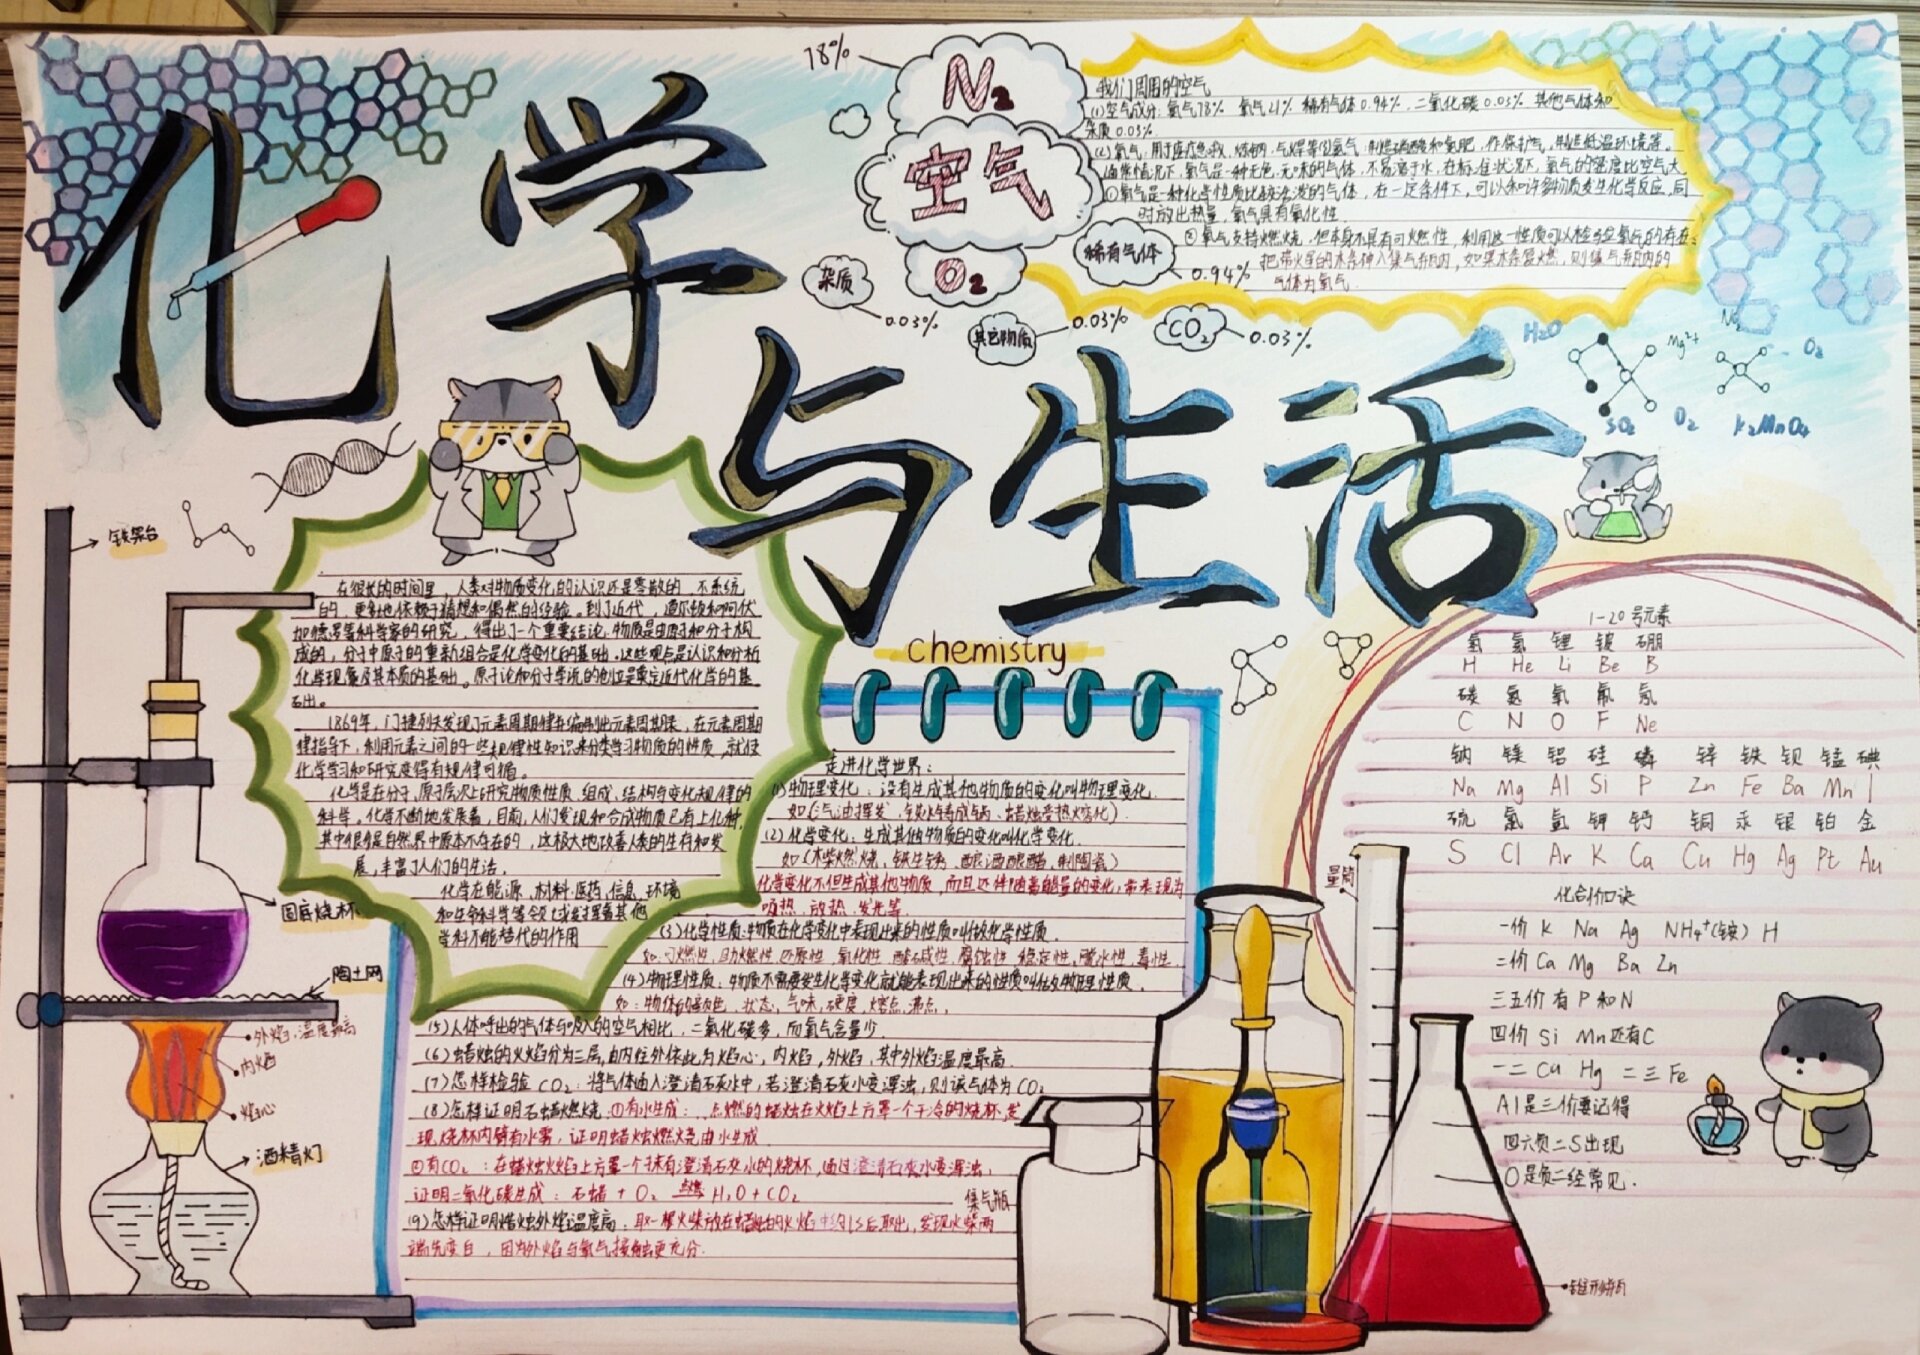 化学
与生活
78%
N₂
空气
O₂
稀有气体
0.94%
杂质
0.03%
其它物质
0.03%
CO₂
0.03%
我们周围的空气
(1)空气成分:氮气78% 氧气21% 稀有气体0.94%,二氧化碳0.03% 其他气体和
杂质0.03%
(2)氧气:用于医疗急救,炼钢,气焊等(2)氮气:制造硝酸和氮肥,作保护气,制造低温环境等。
通常情况下,氧气是一种无色,无味的气体,不易溶于水,在标准状况下,氧气的密度比空气大
①氧气是一种化学性质比较活泼的气体,在一定条件下,可以和许多物质发生化学反应,同
时放出热量,氧气具有氧化性.
②氧气支持燃烧.但本身不具有可燃性,利用这一性质可以检验氧气的存在:
把带火星的木条伸入集气瓶内,如果木条复燃,则集气瓶内的
气体为氧气.
H₂O
Mg²⁺
N₂
O₂
SO₂
O₂
K₂MnO₄
铁架台
在很长的时间里,人类对物质变化的认识还是零散的,不系统
的,更多地依赖于猜想和偶然的经验.到了近代,道尔顿和阿伏
加德罗等科学家的研究,得出了一个重要结论:物质是由原子和分子构
成的,分子中原子的重新组合是化学变化的基础.这些观点是认识和分析
化学现象及其本质的基础。原子论和分子学说的创立是奠定近代化学的基
石出。
1869年,门捷列夫发现了元素周期律并编制出元素周期表,在元素周期
律指导下,利用元素之间的一些规律性知识来分类学习物质的性质,就使
化学学习和研究变得有规律可循。
化学是在分子,原子层次上研究物质性质,组成,结构与变化规律的
科学。化学不断地发展着,目前,人们发现和合成物质已有上亿种,
其中很多是自然界中原本不存在的,这极大地改善人类的生存和发
展,丰富了人们的生活.
化学在能源,材料,医药,信息,环境
和生命科学等领域发挥着其他
学科不能替代的作用
圆底烧杯
陶土网
外焰:温度最高
内焰
焰心
酒精灯
Chemistry
走进化学世界:
(1)物理变化:没有生成其他物质的变化叫物理变化.
如(汽油挥发,铁水铸成锅,蜡烛受热熔化)
(2)化学变化:生成其他物质的变化叫化学变化.
如(木柴燃烧,铁生锈,酿酒酿醋,制陶瓷)
化学变化不但生成其他物质,而且还伴随着能量的变化,常表现为
吸热,放热,发光等.
(3)化学性质:物质在化学变化中表现出来的性质叫做化学性质.
如:可燃性,助燃性,还原性,氧化性,酸碱性,腐蚀性,稳定性,脱水性,毒性
(4)物理性质:物质不需要发生化学变化就能表现出来的性质叫做物理性质.
如:物体的颜色,状态,气味,硬度,熔点,沸点,
(5)人体呼出的气体与吸入的空气相比,二氧化碳多,而氧气含量少.
(6)蜡烛的火焰分为三层,由内往外依此为焰心,内焰,外焰,其中外焰温度最高.
(7)怎样检验CO₂:将气体通入澄清石灰水中,若澄清石灰水变浑浊,则该气体为CO₂
(8)怎样证明石蜡燃烧:①有水生成:,点燃的蜡烛在火焰上方罩一个干冷的烧杯,发
现烧杯内壁有水雾,证明蜡烛燃烧由水生成
②有CO₂:在蜡烛火焰上方罩一个抹有澄清石灰水的烧杯,通过澄清石灰水变浑浊,
证明二氧化碳生成:石蜡+O₂ 点燃 H₂O+CO₂
(9)怎样证明蜡烛外焰温度高:取一根火柴放在蜡烛的火焰中约1S后取出,发现火柴两
端先变白,因为外焰与氧气接触更充分.
集气瓶
量筒
锥形瓶
1-20号元素
氢 氦 锂 铍 硼
H He Li Be B
碳 氮 氧 氟 氖
C N O F Ne
钠 镁 铝 硅 磷 锌 铁 钡 锰 碘
Na Mg Al Si P Zn Fe Ba Mn I
硫 氯 氩 钾 钙 铜 汞 银 铂 金
S Cl Ar K Ca Cu Hg Ag Pt Au
化合价口诀
一价 K Na Ag NH₄⁺(铵) H
二价 Ca Mg Ba Zn
三五价 有 P 和 N
四价 Si Mn 还有C
一二 Cu Hg 二三 Fe
Al是三价要记得
四六负二S出现
O是负二经常见.